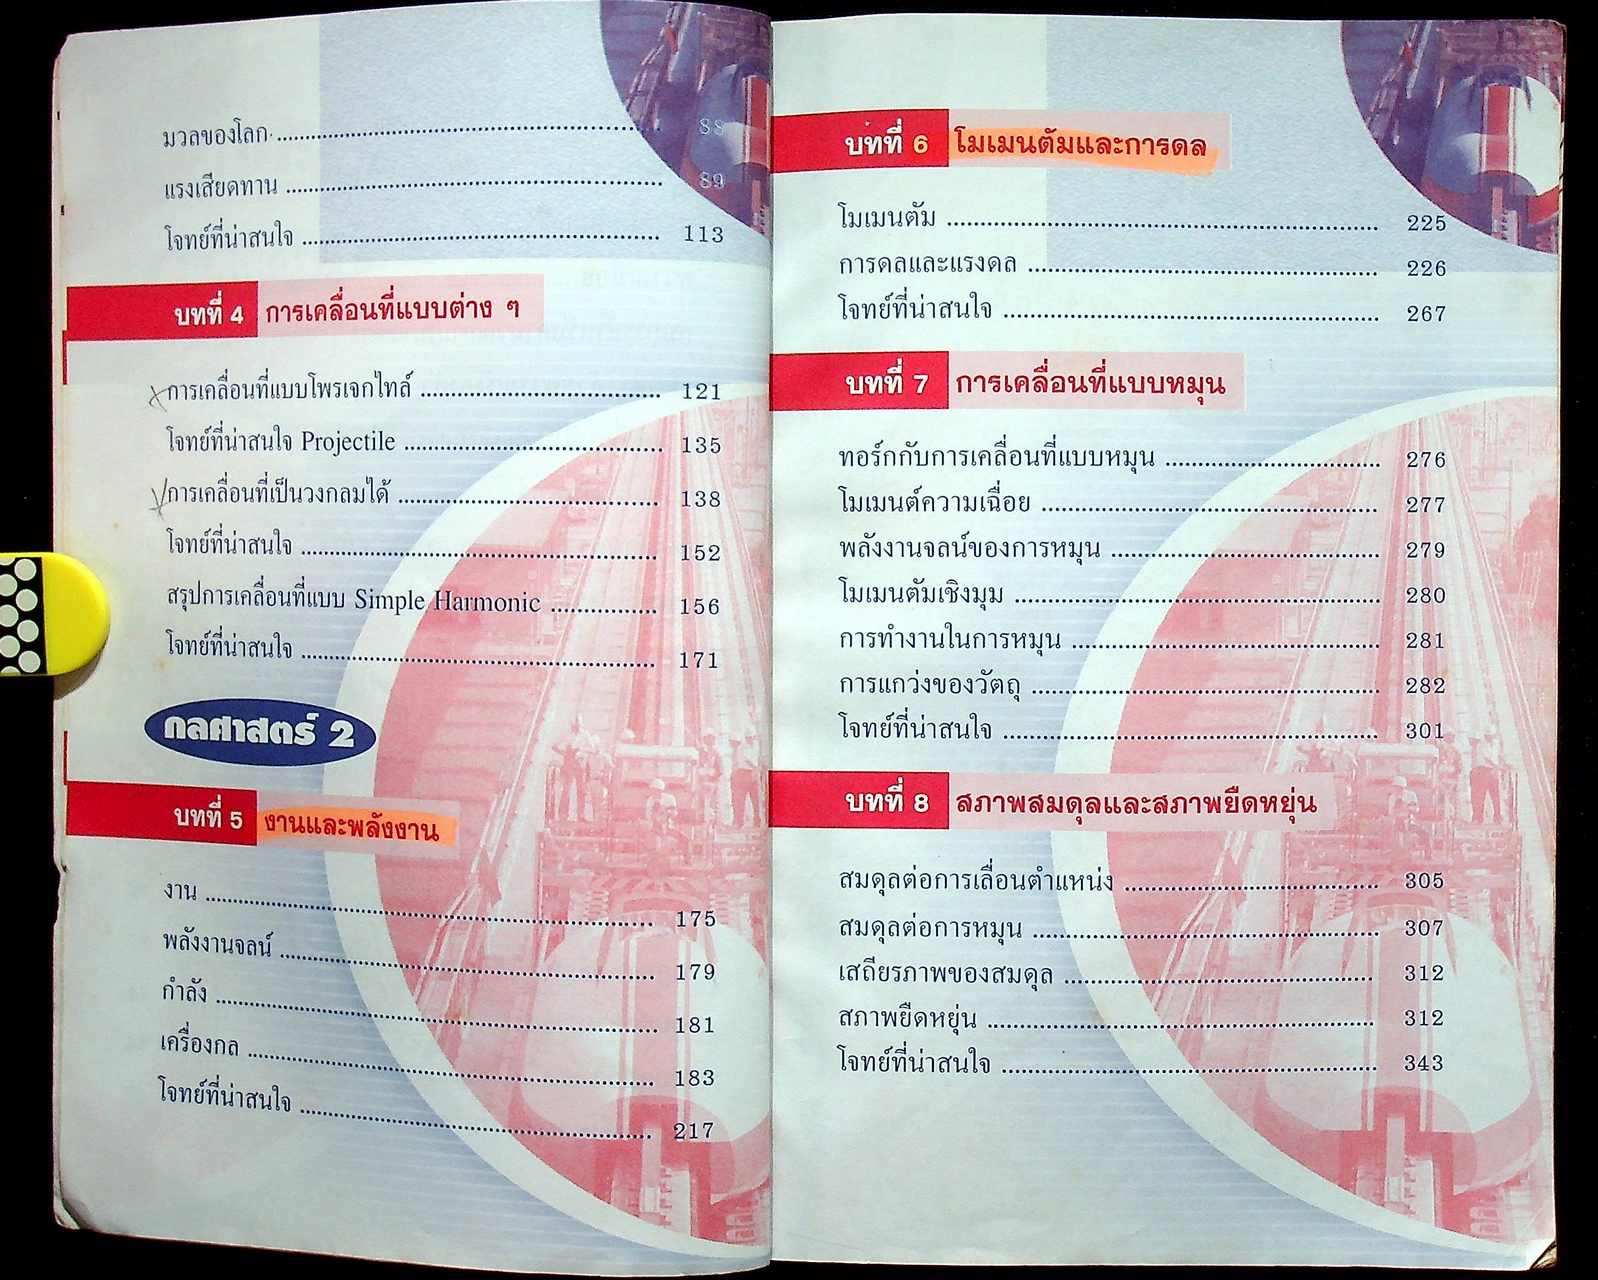 มวลของโลก ........ 88
แรงเสียดทาน ........ 89
โจทย์ที่น่าสนใจ ........ 113
บทที่ 4 การเคลื่อนที่แบบต่าง ๆ
การเคลื่อนที่แบบโพรเจกไทล์ ........ 121
โจทย์ที่น่าสนใจ Projectile ........ 135
การเคลื่อนที่เป็นวงกลมได้ ........ 138
โจทย์ที่น่าสนใจ ........ 152
สรุปการเคลื่อนที่แบบ Simple Harmonic ........ 156
โจทย์ที่น่าสนใจ ........ 171
กลศาสตร์ 2
บทที่ 5 งานและพลังงาน
งาน ........ 175
พลังงานจลน์ ........ 179
กำลัง ........ 181
เครื่องกล ........ 183
โจทย์ที่น่าสนใจ ........ 217
บทที่ 6 โมเมนตัมและการดล
โมเมนตัม ........ 225
การดลและแรงดล ........ 226
โจทย์ที่น่าสนใจ ........ 267
บทที่ 7 การเคลื่อนที่แบบหมุน
ทอร์กกับการเคลื่อนที่แบบหมุน ........ 276
โมเมนต์ความเฉื่อย ........ 277
พลังงานจลน์ของการหมุน ........ 279
โมเมนตัมเชิงมุม ........ 280
การทำงานในการหมุน ........ 281
การแกว่งของวัตถุ ........ 282
โจทย์ที่น่าสนใจ ........ 301
บทที่ 8 สภาพสมดุลและสภาพยืดหยุ่น
สมดุลต่อการเลื่อนตำแหน่ง ........ 305
สมดุลต่อการหมุน ........ 307
เสถียรภาพของสมดุล ........ 312
สภาพยืดหยุ่น ........ 312
โจทย์ที่น่าสนใจ ........ 343